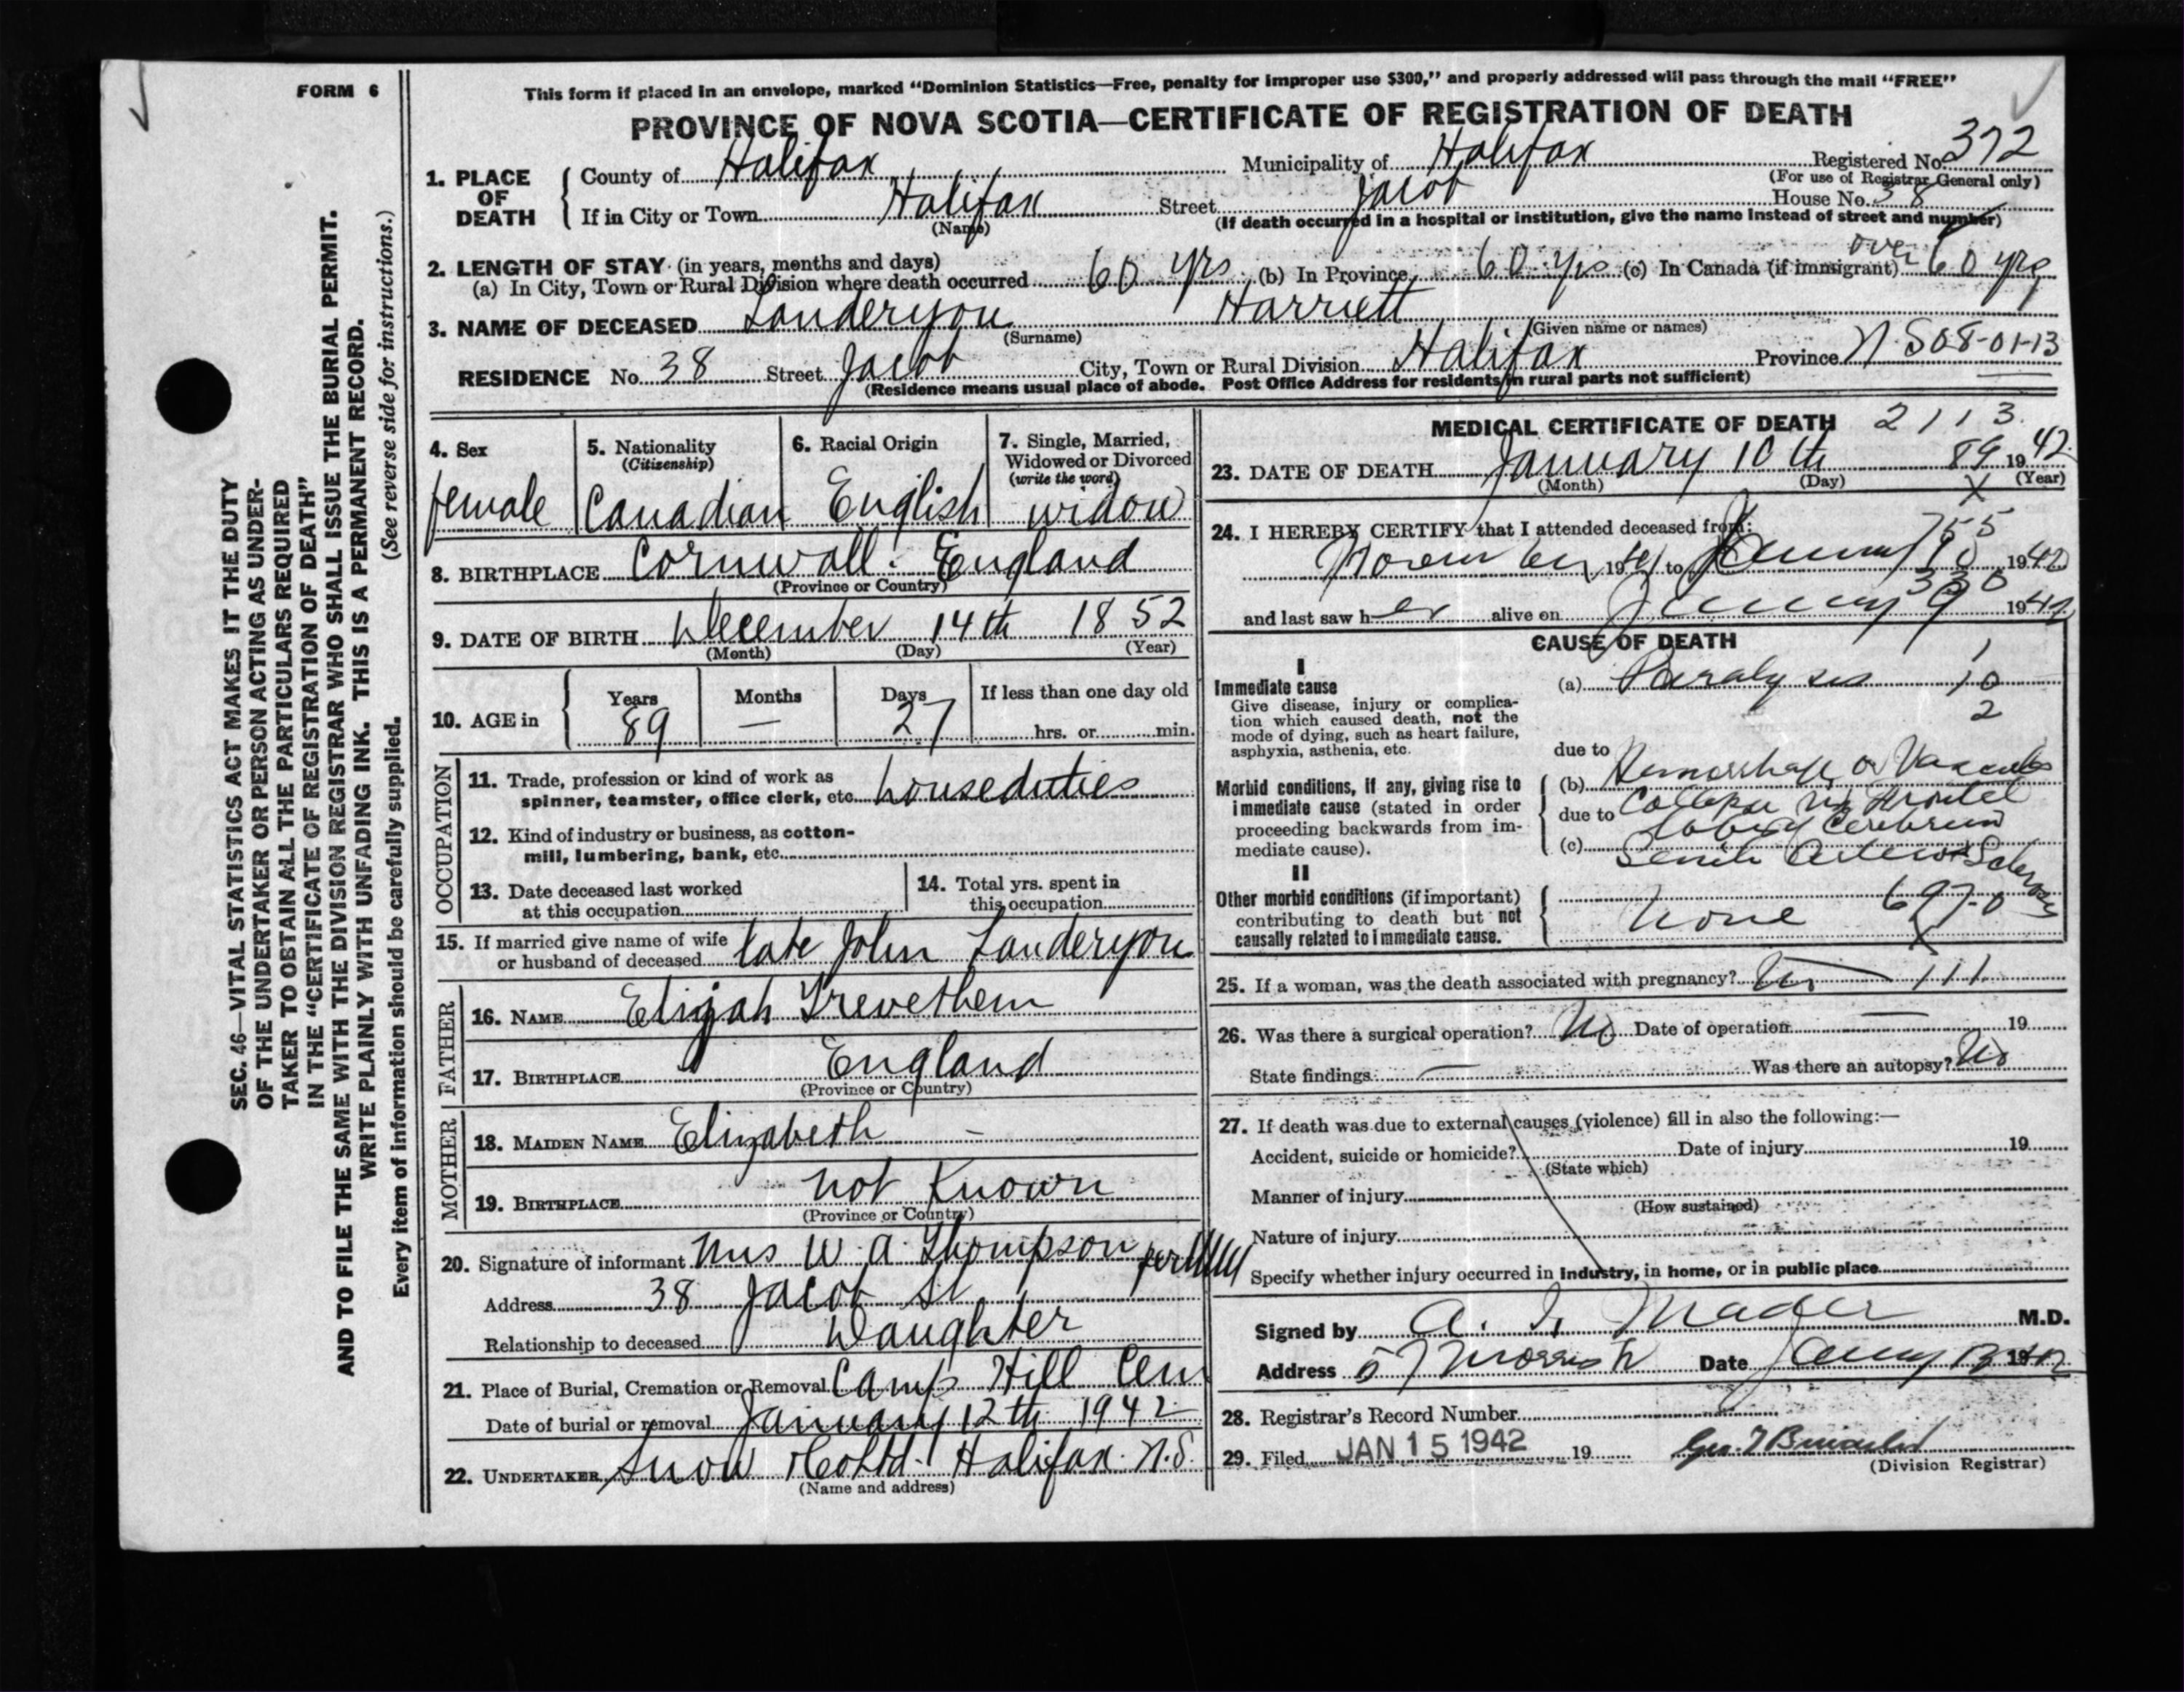 FORM 6
This form if placed in an envelope, marked "Dominion Statistics—Free, penalty for improper use $300," and properly addressed will pass through the mail "FREE"
PROVINCE OF NOVA SCOTIA—CERTIFICATE OF REGISTRATION OF DEATH
1. PLACE OF DEATH
County of Halifax Municipality of Halifax Registered No. 372
(For use of Registrar General only)
If in City or Town Halifax Street Jacob House No. 38
(Name) (If death occurred in a hospital or institution, give the name instead of street and number)
2. LENGTH OF STAY (in years, months and days)
(a) In City, Town or Rural Division where death occurred 60 yrs (b) In Province 60 yrs (c) In Canada (if immigrant) over 60 yrs
3. NAME OF DECEASED Landeryou Harriett
(Surname) (Given name or names)
RESIDENCE No. 38 Street Jacob City, Town or Rural Division Halifax Province N.S 08-01-13
(Residence means usual place of abode. Post Office Address for residents in rural parts not sufficient)
4. Sex
female
5. Nationality
(Citizenship)
Canadian
6. Racial Origin
English
7. Single, Married,
Widowed or Divorced
(write the word)
widow
8. BIRTHPLACE Cornwall. England
(Province or Country)
9. DATE OF BIRTH December 14th 1852
(Month) (Day) (Year)
10. AGE in
Years Months Days If less than one day old
89 — 27 hrs. or min.
OCCUPATION
11. Trade, profession or kind of work as
spinner, teamster, office clerk, etc. houseduties
12. Kind of industry or business, as cotton-
mill, lumbering, bank, etc.
13. Date deceased last worked
at this occupation
14. Total yrs. spent in
this occupation
15. If married give name of wife
or husband of deceased late John Landeryou
FATHER
16. NAME Elijah Trevethem
17. BIRTHPLACE England
(Province or Country)
MOTHER
18. MAIDEN NAME Elizabeth —
19. BIRTHPLACE not Known
(Province or Country)
20. Signature of informant Mrs W. A. Thompson per
Address 38 Jacob St
Relationship to deceased Daughter
21. Place of Burial, Cremation or Removal Camp Hill Cem
Date of burial or removal January 12th 1942
22. UNDERTAKER Snow & Co Ltd. Halifax. N.S.
(Name and address)
MEDICAL CERTIFICATE OF DEATH 2113.
23. DATE OF DEATH January 10th 89 1942.
(Month) (Day) (Year)
X
24. I HEREBY CERTIFY that I attended deceased from:
755
November 1941 to January 10 1942
330
and last saw her alive on January 9 1942
CAUSE OF DEATH
I
Immediate cause
Give disease, injury or complica-
tion which caused death, not the
mode of dying, such as heart failure,
asphyxia, asthenia, etc.
(a) Paralysis
1
10
2
Morbid conditions, if any, giving rise to
immediate cause (stated in order
proceeding backwards from im-
mediate cause).
due to
(b) Hemorrhage or Vascular
due to Collapse Frontal
lobe of Cerebrum
(c) Senile Arterio Sclerosis
II
Other morbid conditions (if important)
contributing to death but not
causally related to immediate cause.
none 697-0
X
25. If a woman, was the death associated with pregnancy? No 111
26. Was there a surgical operation? No Date of operation — 19
State findings — Was there an autopsy? No
27. If death was due to external causes (violence) fill in also the following:—
Accident, suicide or homicide? Date of injury 19
(State which)
Manner of injury
(How sustained)
Nature of injury
Specify whether injury occurred in industry, in home, or in public place
Signed by A. I. Mader M.D.
Address 57 Morris St Date January 1942
28. Registrar's Record Number
29. Filed JAN 15 1942 19
(Division Registrar)
SEC. 46—VITAL STATISTICS ACT MAKES IT THE DUTY
OF THE UNDERTAKER OR PERSON ACTING AS UNDER-
TAKER TO OBTAIN ALL THE PARTICULARS REQUIRED
IN THE "CERTIFICATE OF REGISTRATION OF DEATH"
AND TO FILE THE SAME WITH THE DIVISION REGISTRAR WHO SHALL ISSUE THE BURIAL PERMIT.
WRITE PLAINLY WITH UNFADING INK. THIS IS A PERMANENT RECORD.
Every item of information should be carefully supplied. (See reverse side for instructions.)